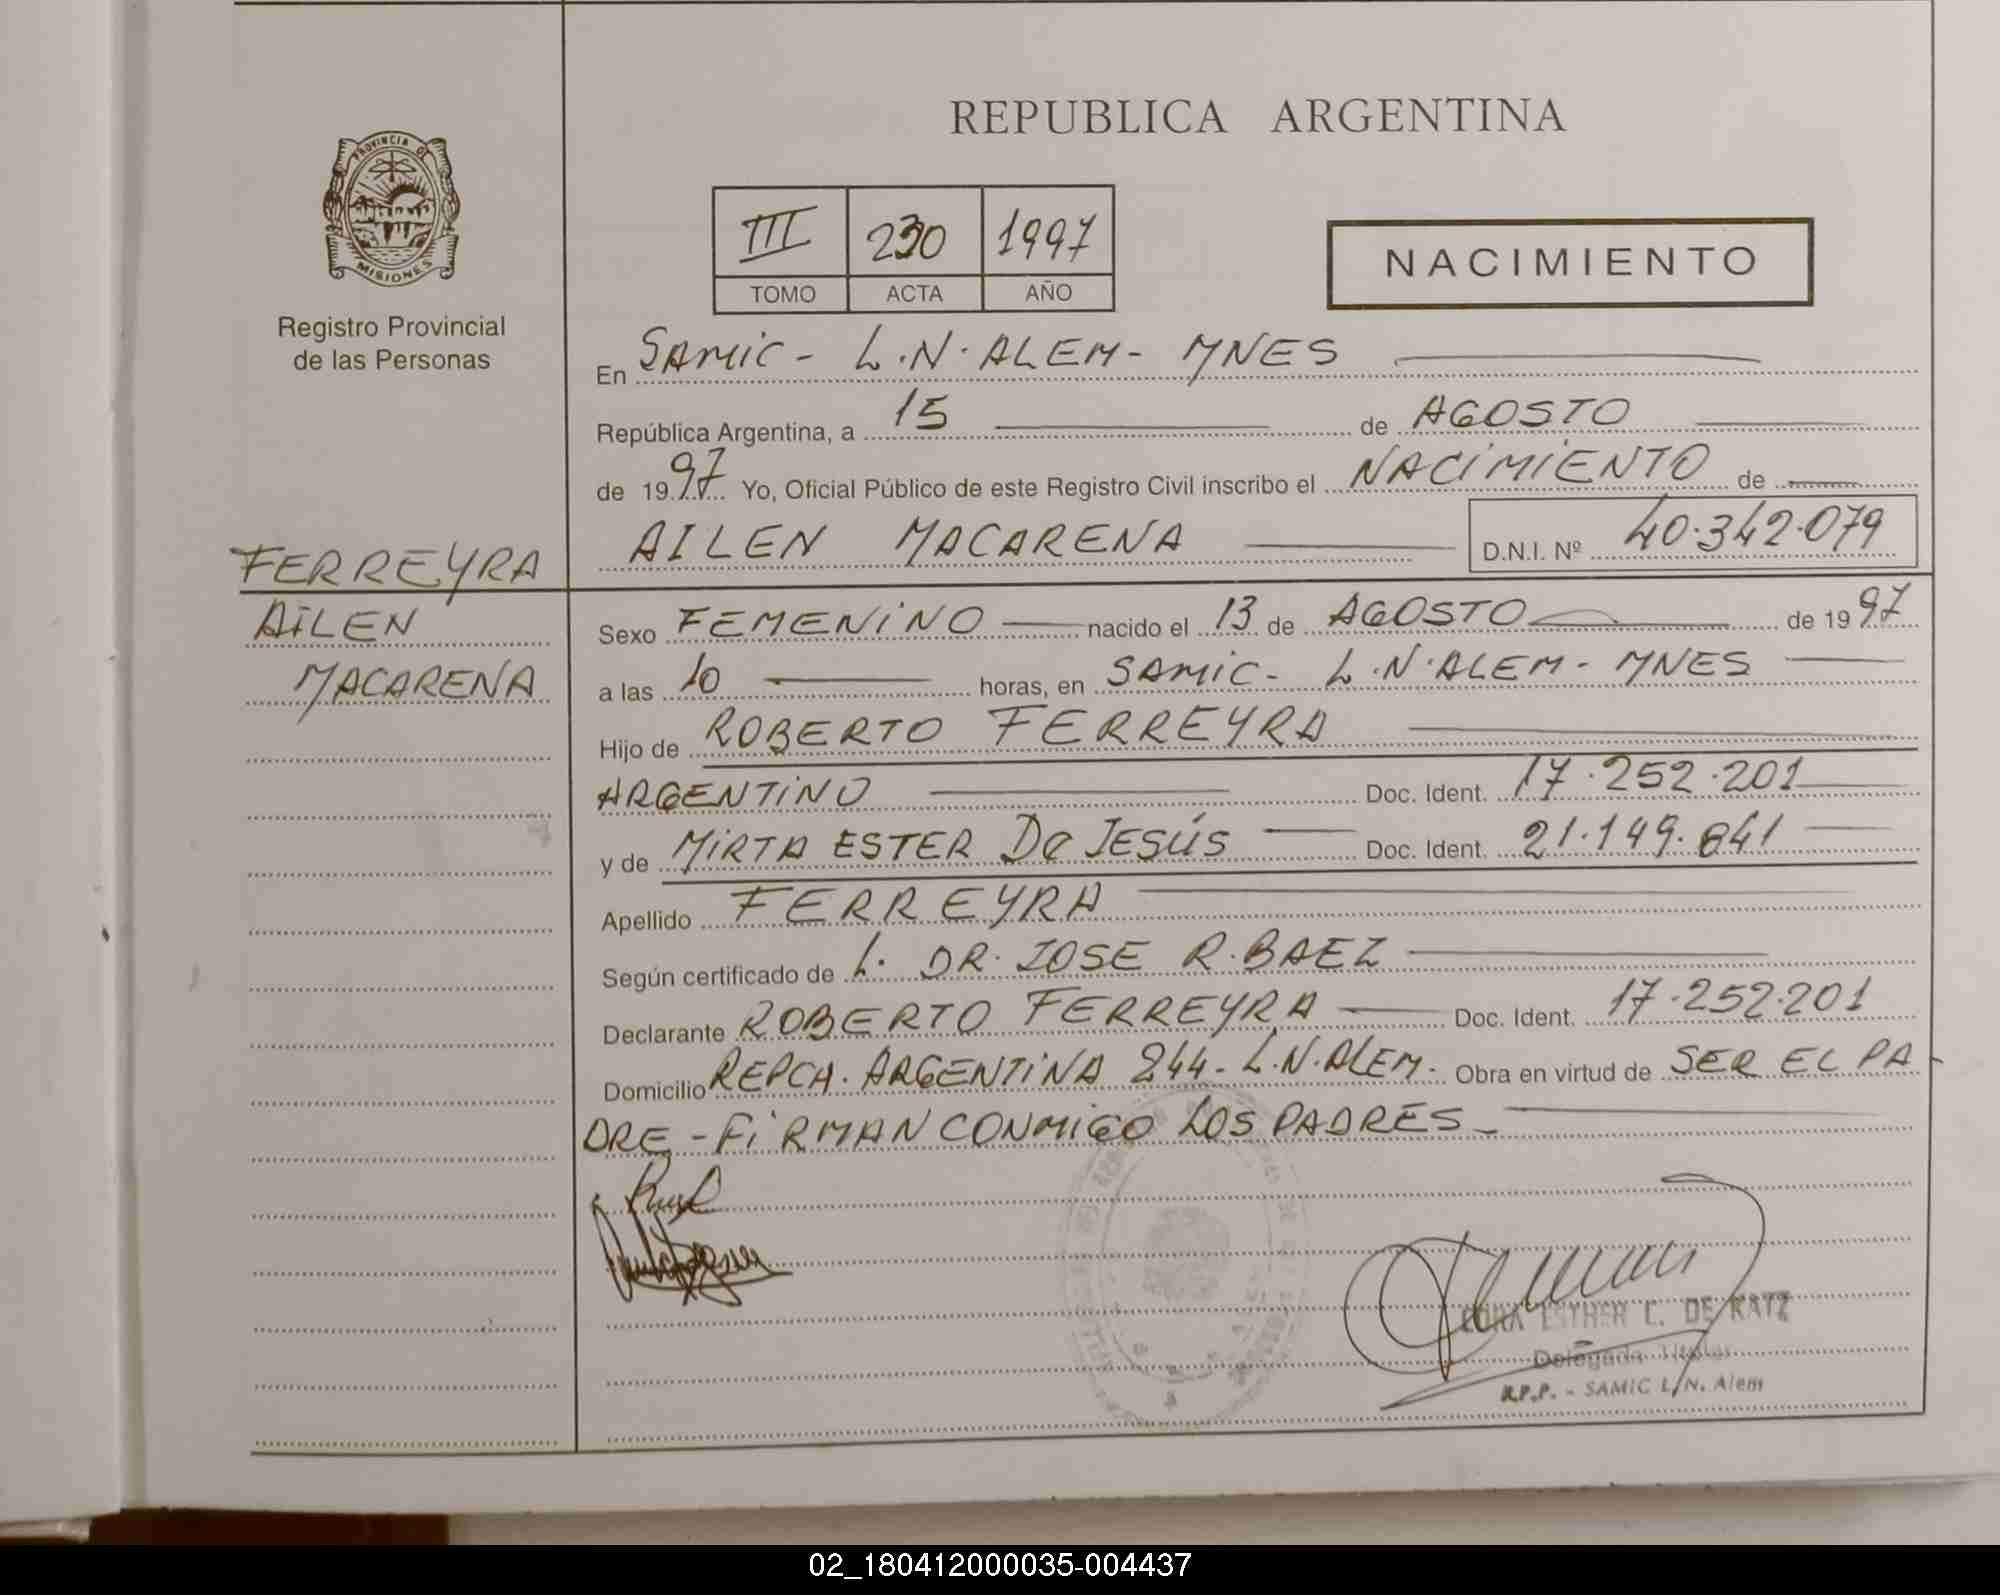 REPUBLICA ARGENTINA
PROVINCIA DE
MISIONES
Registro Provincial
de las Personas
III 230 1997
TOMO ACTA AÑO
NACIMIENTO
En SAMIC - L.N. ALEM - MNES
República Argentina, a 15 de AGOSTO
de 1997 Yo, Oficial Público de este Registro Civil inscribo el NACIMIENTO de
AILEN MACARENA D.N.I. Nº 40.342.079
FERREYRA
AILEN
MACARENA
Sexo FEMENINO nacido el 13 de AGOSTO de 1997
a las 10 horas, en SAMIC - L.N. ALEM - MNES
Hijo de ROBERTO FERREYRA
ARGENTINO Doc. Ident. 17.252.201
y de MIRTA ESTER De JESÚS Doc. Ident. 21.149.841
Apellido FERREYRA
Según certificado de L. DR. JOSE R. BAEZ
Declarante ROBERTO FERREYRA Doc. Ident. 17.252.201
Domicilio REPCA. ARGENTINA 244 - L.N. ALEM. Obra en virtud de SER EL PA-
DRE - FIRMAN CONMIGO LOS PADRES -
ESTHER C. DE KATZ
Delegada Titular
R.P.P. - SAMIC L.N. Alem
02_180412000035-004437